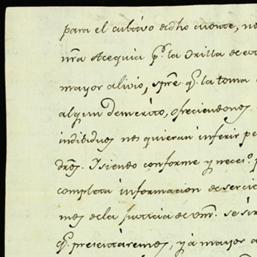 para el cultivo de dho cuente, no
nrã Acequia pr. la Orilla de
mayor alivio, spre q.e la toma
algun demerito, ofreciendonos
individuos nos quieran inferir pe
dros. Y siendo conforme y neces.o
completa informacion de
mos de la Justicia de Vm. se sir
q.e presentáremos, y á mayor a